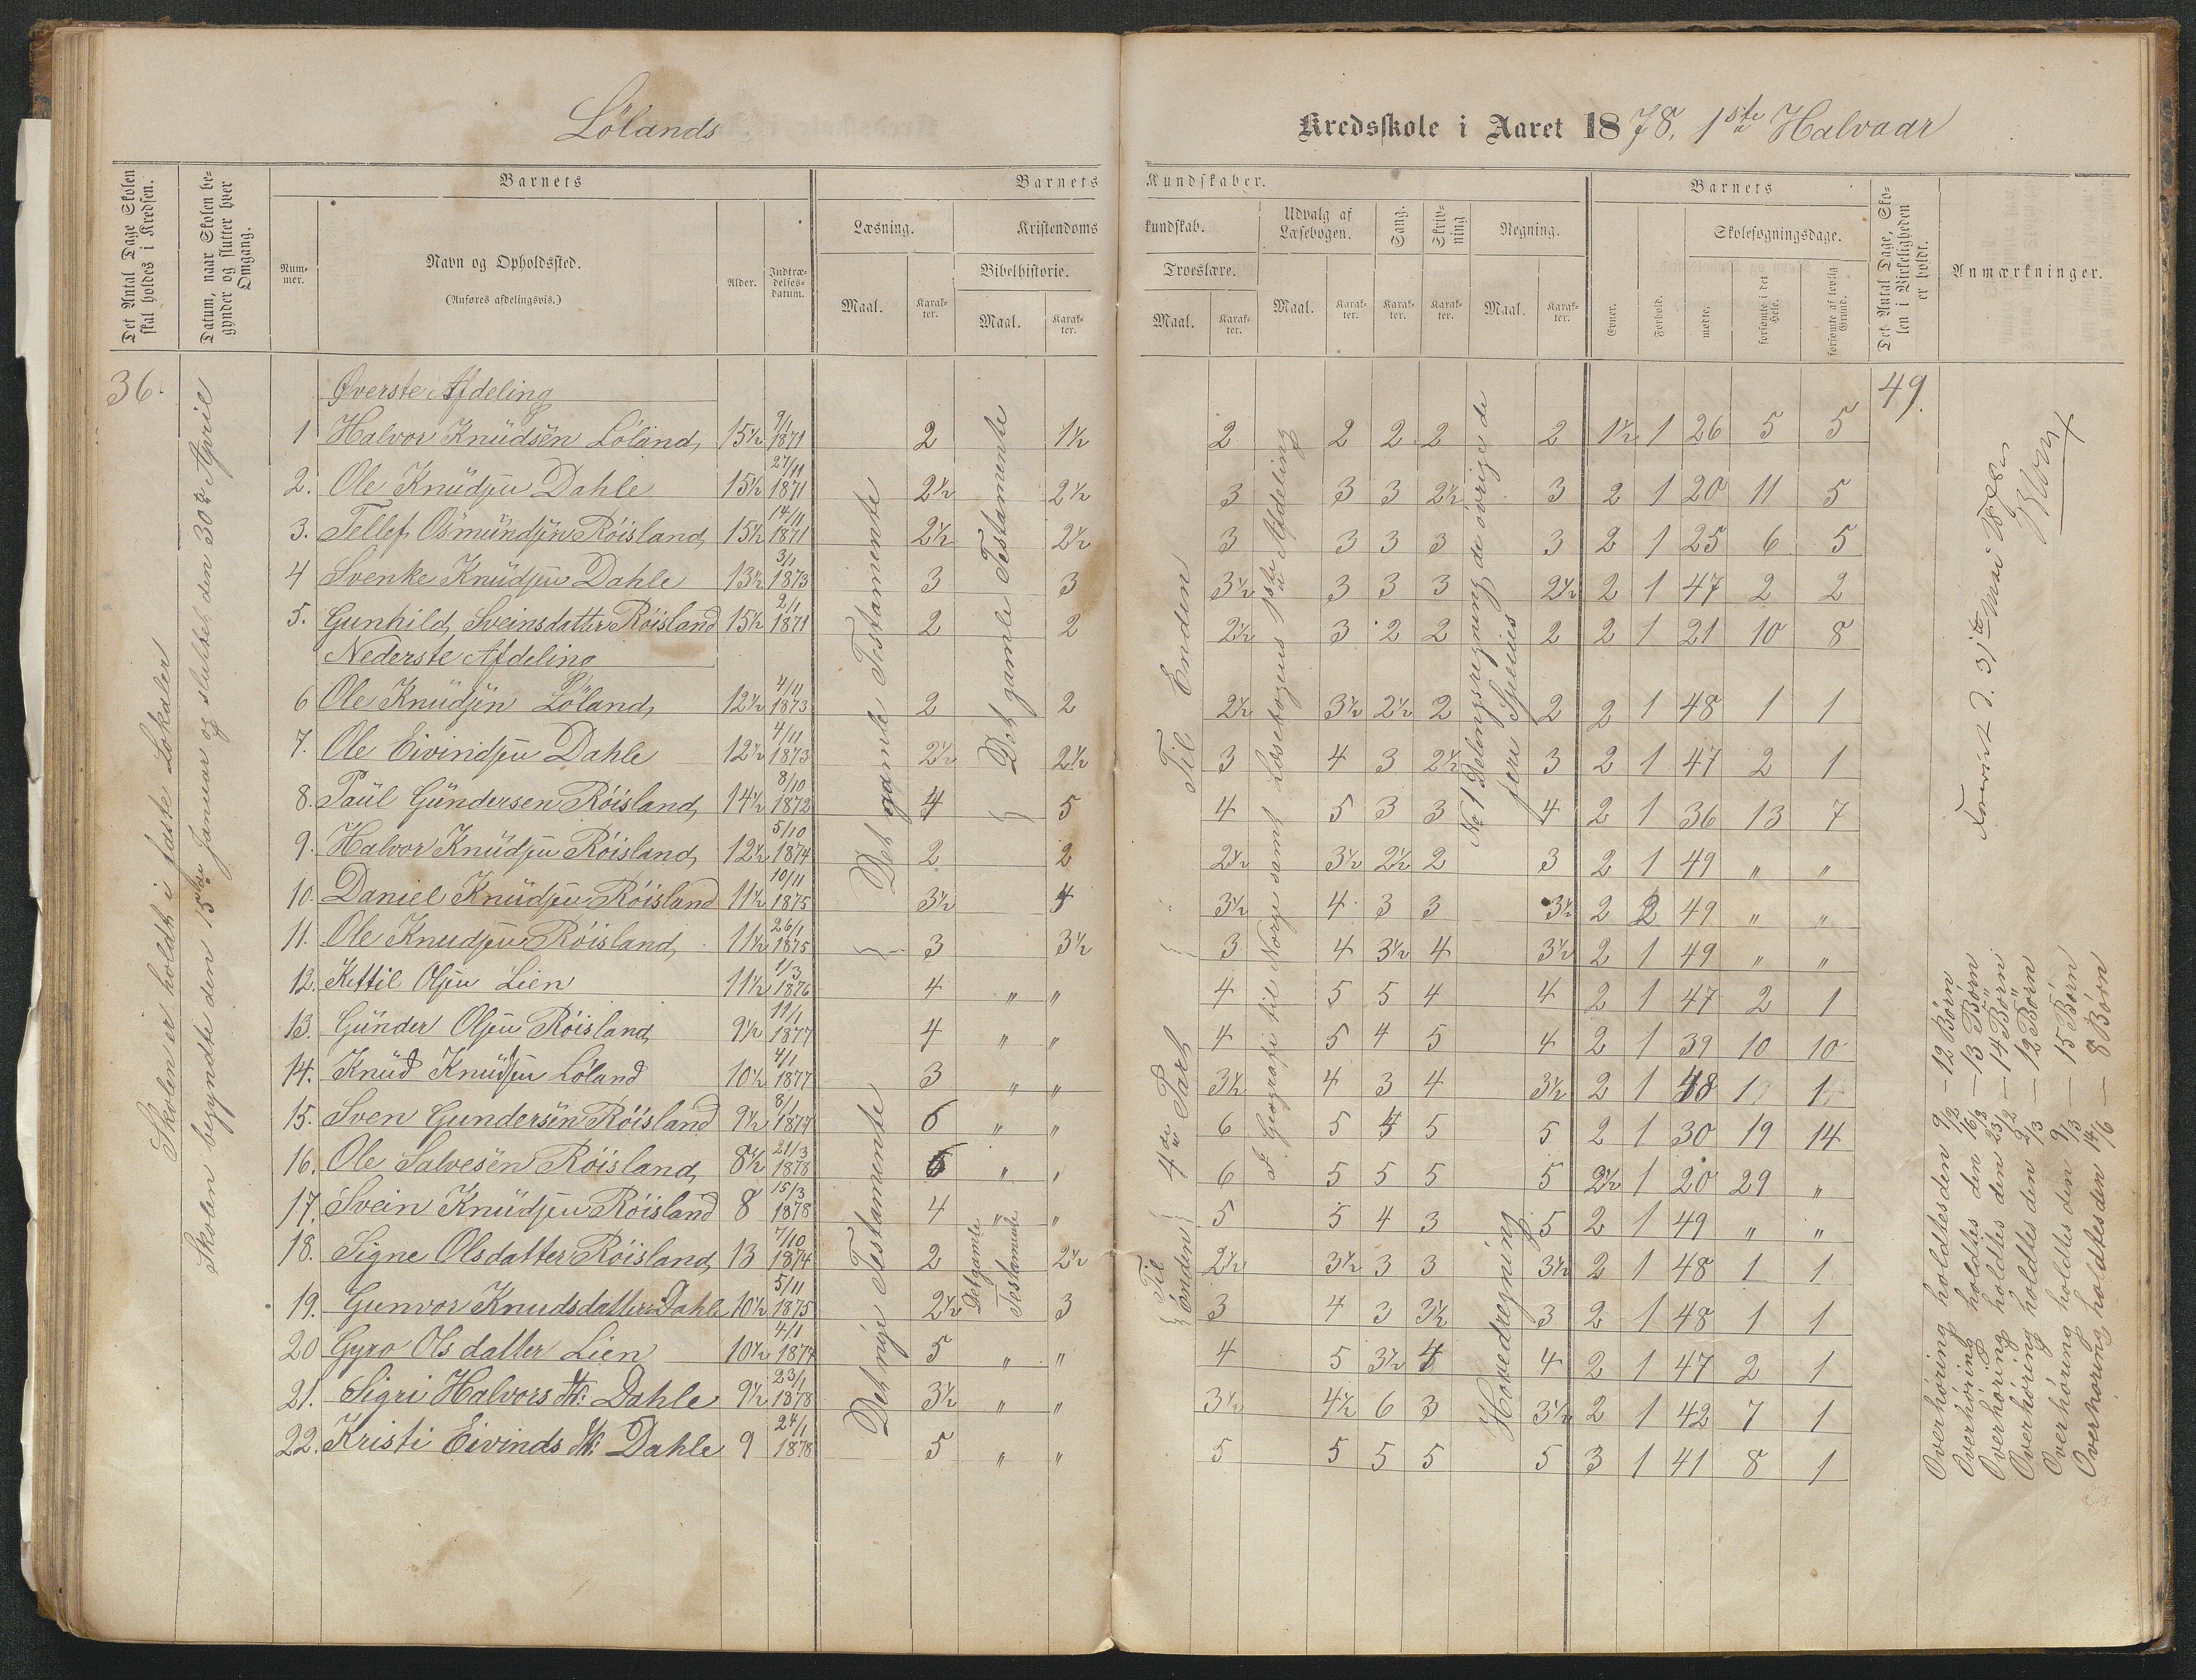 Lölands
Kredsskole i Aaret 1878, 1ste Halvaar
Det Antal Dage Skolen skal holdes i Kredsen.
Datum, naar Skolen begynder og slutter hver Omgang.
Barnets
Nummer.
Navn og Opholdssted.
(Anføres afdelingsvis.)
Alder.
Indtrædelsesdatum.
Barnets Kundskaber.
Læsning.
Maal.
Karakter.
Kristendomskundskab.
Bibelhistorie.
Maal.
Karakter.
Troeslære.
Maal.
Karakter.
Udvalg af Læsebogen.
Maal.
Karakter.
Sang.
Karakter.
Skrivning.
Karakter.
Regning.
Maal.
Karakter.
Barnets
Evner.
Forhold.
Skolesøgningsdage.
mødte.
forsømte i det Hele.
forsømte af lovlig Grund.
Det Antal Dage, Skolen i Virkeligheden er holdt.
Anmærkninger.
36.
49.
Skolen er holdt i faste Lokaler
Skolen begyndte den 15de Januar og sluttet den 30te April
Øverste Afdeling
1 Halvor Knüdsen Löland 15½ 9/1 1871 2 1½ 2 2 2 2 2 1½ 1 26 5 5
2. Ole Knüdsen Dahle 15½ 27/11 1871 2½ 2½ 3 3 3 2½ 3 2 1 20 11 5
3. Tellef Osmündsen Röisland 15½ 14/11 1871 2½ 2½ 3 3 3 3 3 2 1 25 6 5
4 Svenke Knüdsen Dahle 13½ 3/1 1873 3 3 3½ 3 3 3 2½ 2 1 47 2 2
5. Gunhild Sveinsdatter Röisland 15½ 2/1 1871 2 2 2½ 3 2 2 2 2 1 21 10 8
Nederste Afdeling
6 Ole Knüdsen Löland 12½ 4/11 1873 2 2 2½ 3½ 2½ 2 2 2 1 48 1 1
7. Ole Eivindsen Dahle 12½ 4/11 1873 2½ 2½ 3 4 3 2½ 3 2 1 47 2 1
8. Paül Gündersen Röisland 14½ 8/10 1872 4 5 4 5 3 3 4 2 1 36 13 7
9. Halvor Knüdsen Röisland 12½ 5/10 1874 2 2 2½ 3½ 2½ 2 3 2 1 49 " "
10. Daniel Knüdsen Röisland 11½ 10/11 1875 3½ 4 3½ 4 3 3 3½ 2 2 49 " "
11. Ole Knudsen Röisland 11½ 26/1 1875 3 3½ 3 4 3½ 4 3½ 2 1 49 " "
12. Kettil Olsen Lien 11½ 1/3 1876 4 " " 4 5 5 4 4 2 1 47 2 1
13. Günder Olsen Röisland 9½ 11/1 1877 4 " " 4 5 4 5 4 2 1 39 10 10
14. Knüd Knüdsen Löland 10½ 4/1 1877 3 " " 3½ 4 3 4 3½ 2 1 48 1 1
15. Sven Gundersen Röisland 9½ 8/1 1877 6 " " 6 5 4 5 5 2 1 30 19 14
16. Ole Salvesen Röisland 8½ 21/3 1878 6 " " 6 5 5 5 5 2½ 1 20 29 "
17. Svein Knüdsen Röisland 8 15/3 1878 4 " " 5 5 4 3 5 2 1 49 " "
18. Signe Olsdatter Röisland 13 7/10 1874 2 2½ 2½ 3½ 3 3 3½ 2 1 48 1 1
19. Gunvor Knudsdatter Dahle 10½ 5/11 1875 2½ 3 3 4 3 3½ 3 2 1 48 1 1
20 Gyro Olsdatter Lien 10½ 4/1 1877 5 " " 4 5 3½ 4 4 2 1 47 2 1
21. Sigri Halvors dtr: Dahle 9½ 23/1 1878 3½ " " 3½ 4½ 6 3 3½ 2 1 42 7 1
22. Kristi Eivinds dtr: Dahle 9 24/1 1878 5 " " 5 5 5 5 5 3 1 41 8 1
Det gamle Testamente
Det nye Testamente
Det gamle Testamente
Det gamle Testamente
Til Enden
4de Part
Til Enden
Geografi til Norge samt Læsebogens 1ste Afdeling
No 1 Delingsregning de øvrige de fire Species
Hovedregning
d. 31te Mai 1878
Overhöring holdtes den 9/2 — 12 Börn
Overhöring holdtes den 16/2 — 13 Börn
Overhöring holdtes den 23/2 — 14 Börn
Overhöring holdtes den 2/3 — 12 Börn
Overhöring holdtes den 9/3 — 15 Börn
Overhöring holdtes den 14/6 — 8 Börn